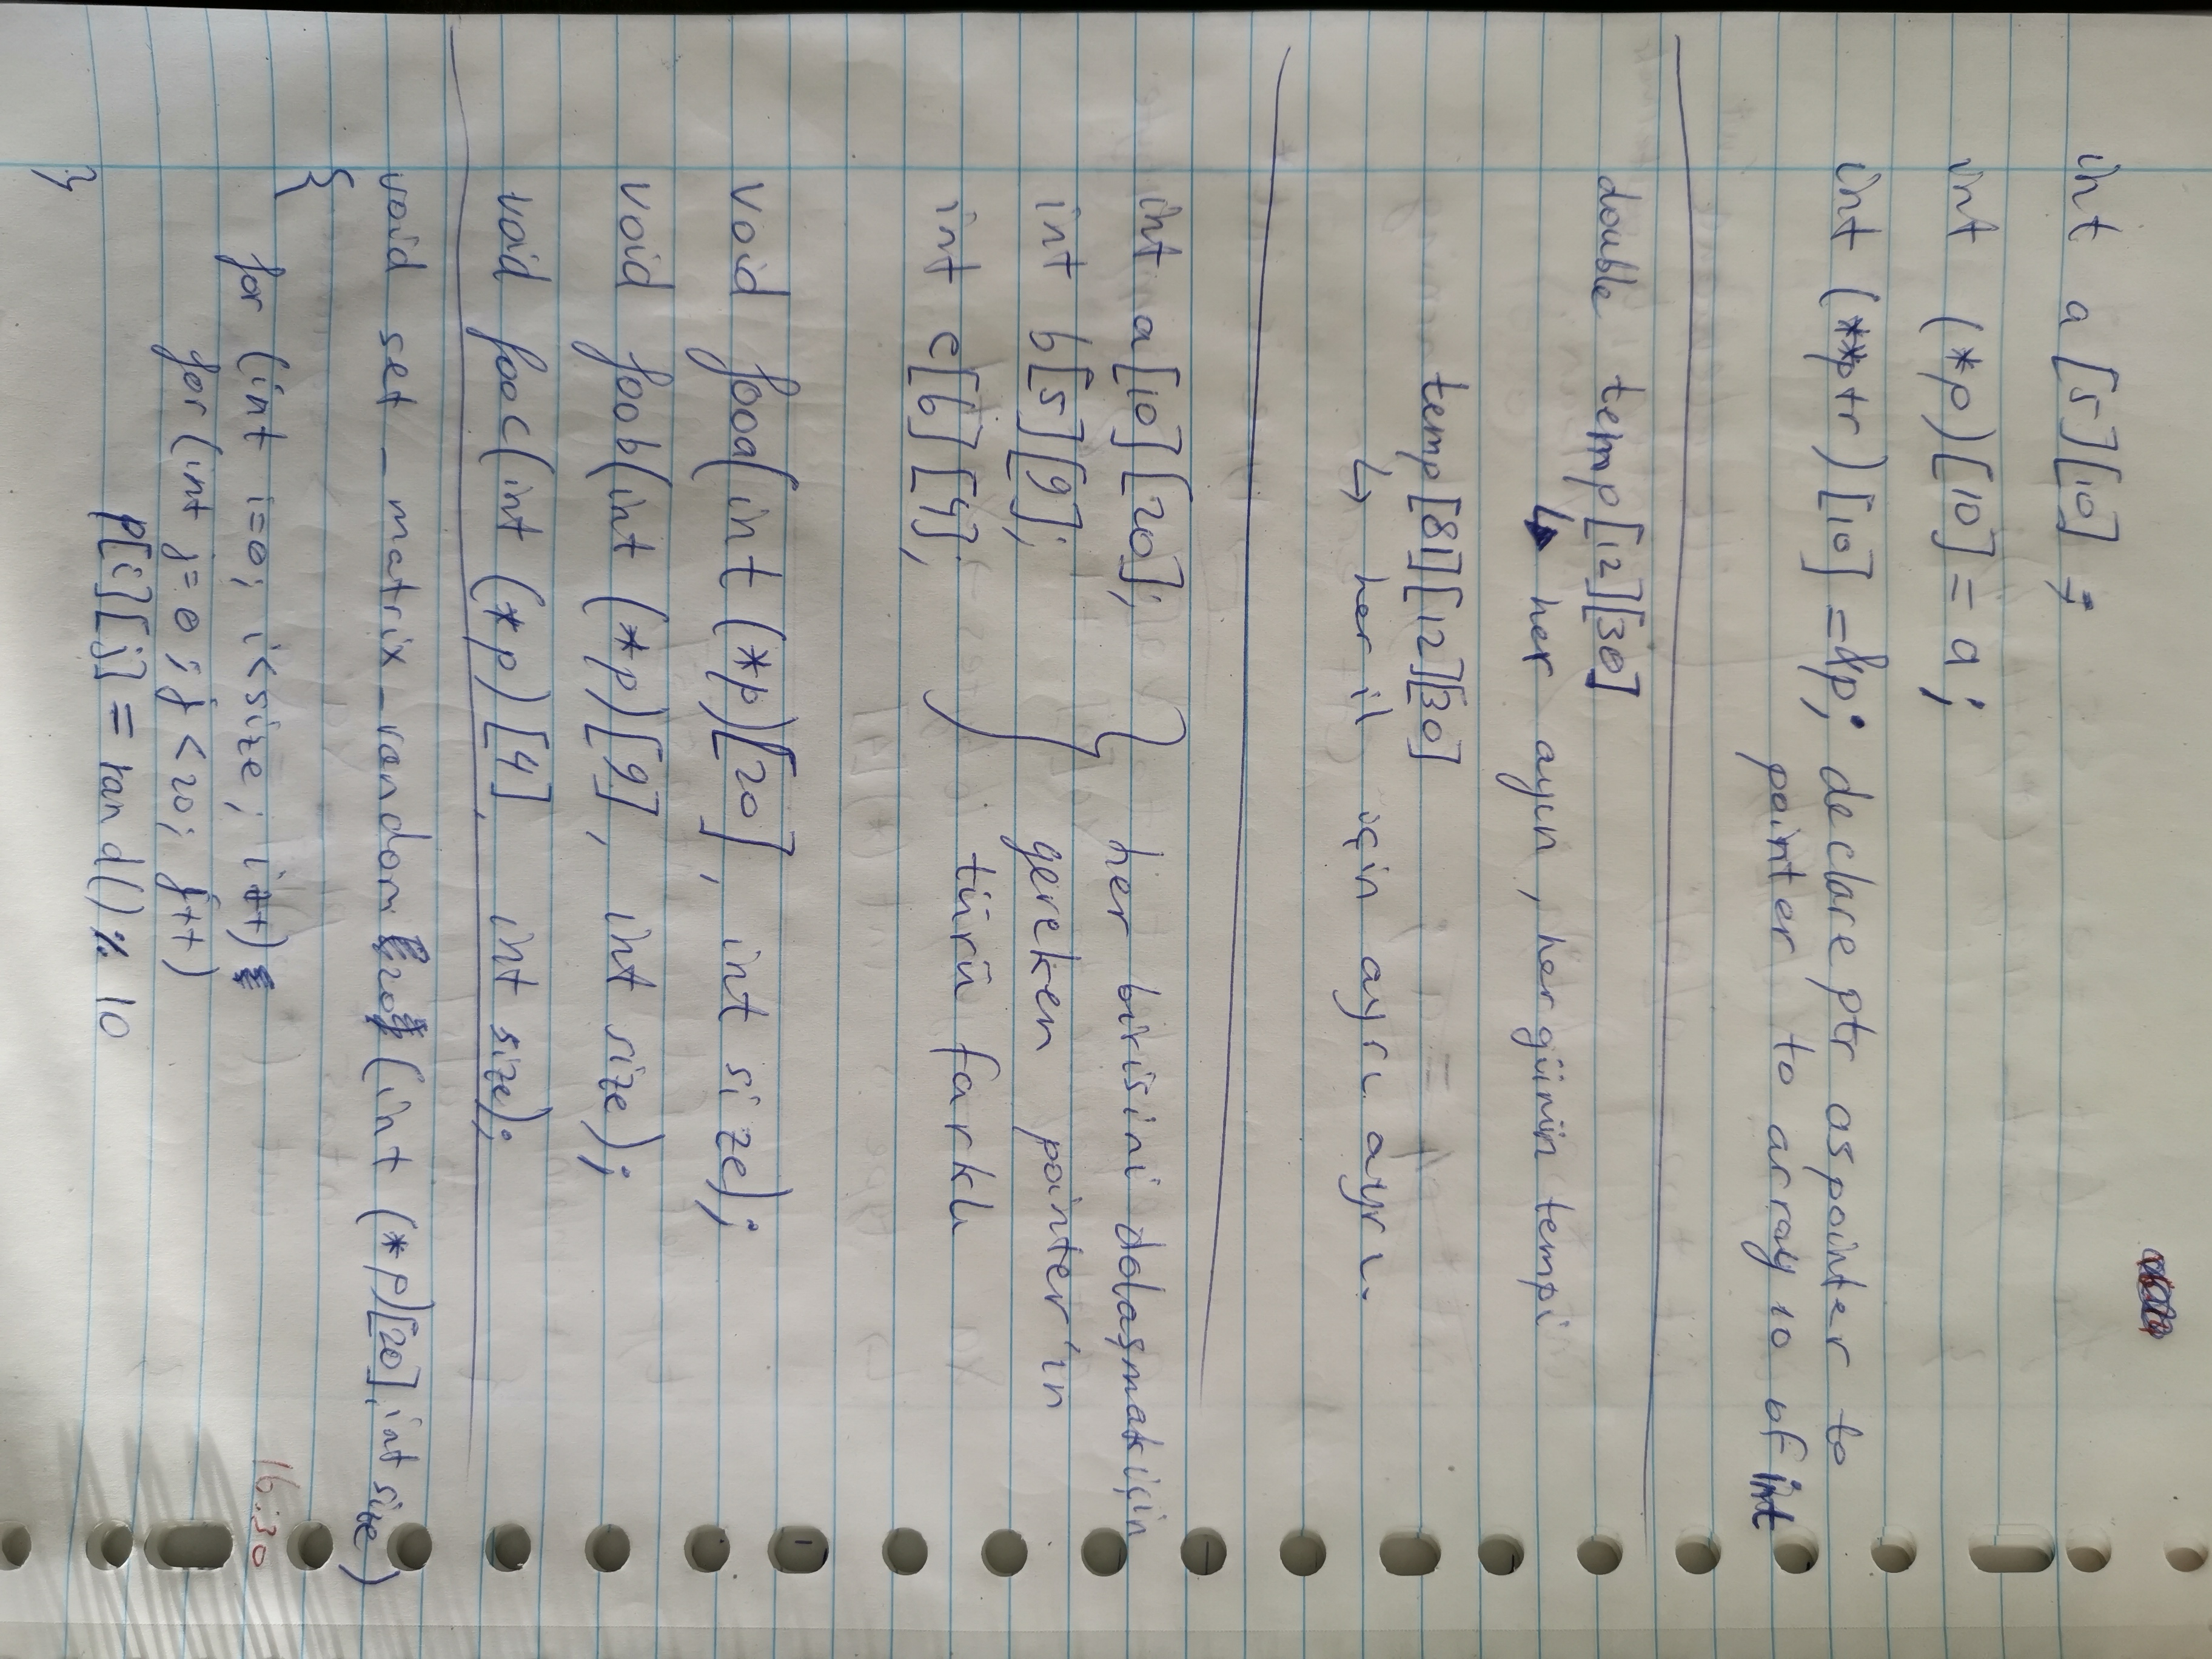 int a[5][10];
int (*p)[10] = a;
int (**ptr)[10] = &p; declare ptr as pointer to
pointer to array 10 of int
double temp[12][30]
↳ her ayın, her günün tempi
temp[81][12][30]
↳ her il için ayrı ayrı.
int a[10][20]; } her birisini dolaşmak için
int b[5][9]; gereken pointer'ın
int c[6][4]; türü farklı
void fooa(int (*p)[20], int size);
void foob(int (*p)[9], int size);
void fooc(int (*p)[4], int size);
void set_matrix_random 20 (int (*p)[20], int size)
{
16:30
for (int i=0; i<size; i++)
for (int j=0; j<20; j++)
p[i][j] = rand() % 10
}